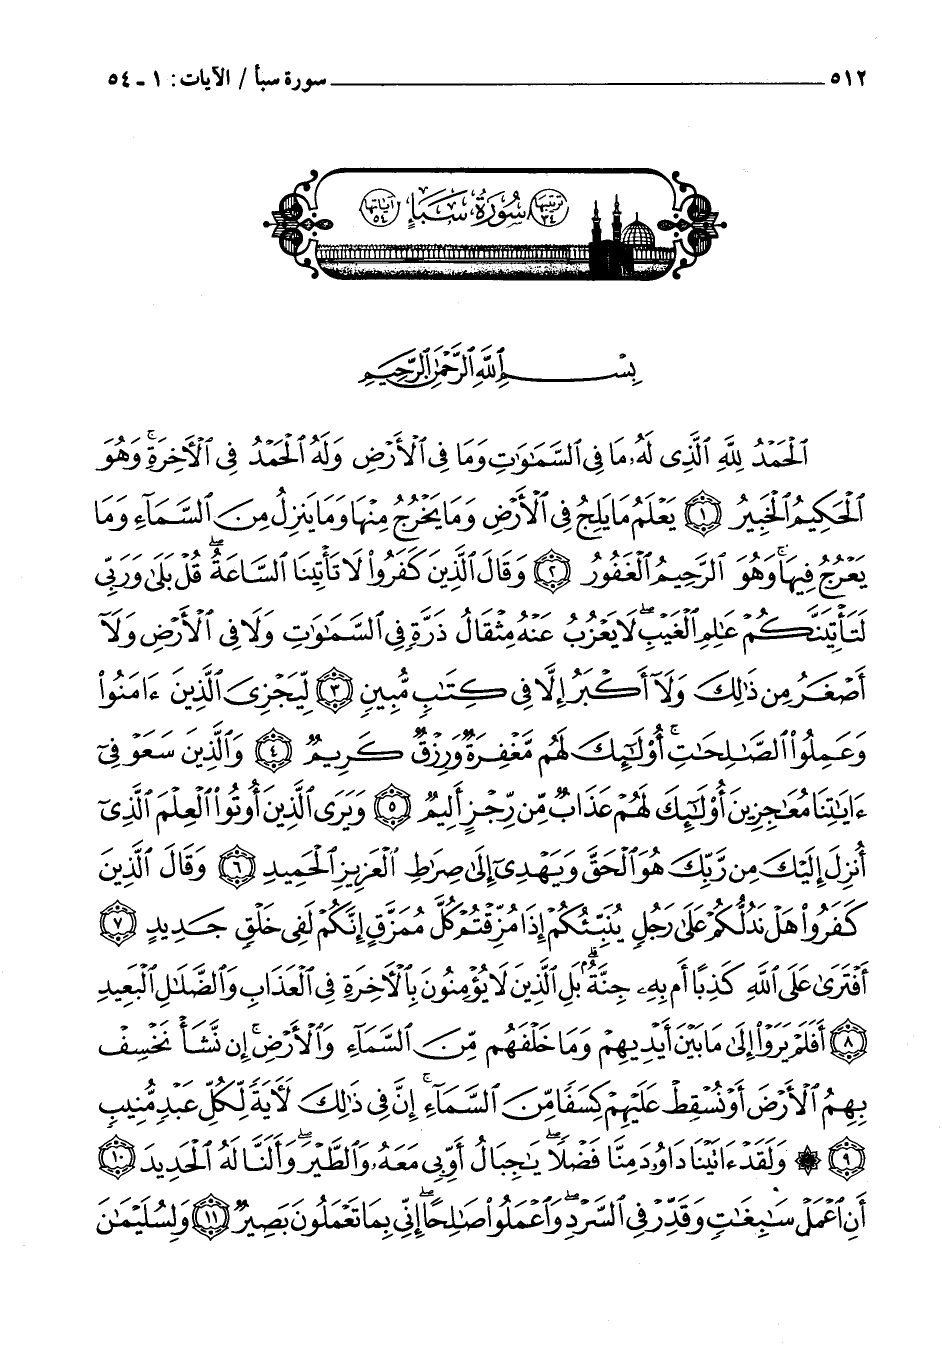 ٥١٢ سورة سبأ / الآيات: ١ ـ ٥٤
ترتيبها ٣٤ سُورَةُ سَبَإٍ آياتها ٥٤
بِسْمِ ٱللَّهِ ٱلرَّحْمَٰنِ ٱلرَّحِيمِ
ٱلْحَمْدُ لِلَّهِ ٱلَّذِى لَهُۥ مَا فِى ٱلسَّمَٰوَٰتِ وَمَا فِى ٱلْأَرْضِ وَلَهُ ٱلْحَمْدُ فِى ٱلْأَخِرَةِ ۚ وَهُوَ
ٱلْحَكِيمُ ٱلْخَبِيرُ ﴿١﴾ يَعْلَمُ مَا يَلِجُ فِى ٱلْأَرْضِ وَمَا يَخْرُجُ مِنْهَا وَمَا يَنزِلُ مِنَ ٱلسَّمَآءِ وَمَا
يَعْرُجُ فِيهَا ۚ وَهُوَ ٱلرَّحِيمُ ٱلْغَفُورُ ﴿٢﴾ وَقَالَ ٱلَّذِينَ كَفَرُوا۟ لَا تَأْتِينَا ٱلسَّاعَةُ ۖ قُلْ بَلَىٰ وَرَبِّى
لَتَأْتِيَنَّكُمْ عَٰلِمِ ٱلْغَيْبِ ۖ لَا يَعْزُبُ عَنْهُ مِثْقَالُ ذَرَّةٍ فِى ٱلسَّمَٰوَٰتِ وَلَا فِى ٱلْأَرْضِ وَلَآ
أَصْغَرُ مِن ذَٰلِكَ وَلَآ أَكْبَرُ إِلَّا فِى كِتَٰبٍ مُّبِينٍ ﴿٣﴾ لِّيَجْزِىَ ٱلَّذِينَ ءَامَنُوا۟
وَعَمِلُوا۟ ٱلصَّٰلِحَٰتِ ۚ أُو۟لَٰٓئِكَ لَهُم مَّغْفِرَةٌ وَرِزْقٌ كَرِيمٌ ﴿٤﴾ وَٱلَّذِينَ سَعَوْ فِىٓ
ءَايَٰتِنَا مُعَٰجِزِينَ أُو۟لَٰٓئِكَ لَهُمْ عَذَابٌ مِّن رِّجْزٍ أَلِيمٌ ﴿٥﴾ وَيَرَى ٱلَّذِينَ أُوتُوا۟ ٱلْعِلْمَ ٱلَّذِىٓ
أُنزِلَ إِلَيْكَ مِن رَّبِّكَ هُوَ ٱلْحَقَّ وَيَهْدِىٓ إِلَىٰ صِرَٰطِ ٱلْعَزِيزِ ٱلْحَمِيدِ ﴿٦﴾ وَقَالَ ٱلَّذِينَ
كَفَرُوا۟ هَلْ نَدُلُّكُمْ عَلَىٰ رَجُلٍ يُنَبِّئُكُمْ إِذَا مُزِّقْتُمْ كُلَّ مُمَزَّقٍ إِنَّكُمْ لَفِى خَلْقٍ جَدِيدٍ ﴿٧﴾
أَفْتَرَىٰ عَلَى ٱللَّهِ كَذِبًا أَم بِهِۦ جِنَّةٌۢ ۗ بَلِ ٱلَّذِينَ لَا يُؤْمِنُونَ بِٱلْأَخِرَةِ فِى ٱلْعَذَابِ وَٱلضَّلَٰلِ ٱلْبَعِيدِ
﴿٨﴾ أَفَلَمْ يَرَوْا۟ إِلَىٰ مَا بَيْنَ أَيْدِيهِمْ وَمَا خَلْفَهُم مِّنَ ٱلسَّمَآءِ وَٱلْأَرْضِ ۚ إِن نَّشَأْ نَخْسِفْ
بِهِمُ ٱلْأَرْضَ أَوْ نُسْقِطْ عَلَيْهِمْ كِسَفًا مِّنَ ٱلسَّمَآءِ ۚ إِنَّ فِى ذَٰلِكَ لَأَيَةً لِّكُلِّ عَبْدٍ مُّنِيبٍ
﴿٩﴾ ۞ وَلَقَدْ ءَاتَيْنَا دَاوُۥدَ مِنَّا فَضْلًا ۖ يَٰجِبَالُ أَوِّبِى مَعَهُۥ وَٱلطَّيْرَ ۖ وَأَلَنَّا لَهُ ٱلْحَدِيدَ ﴿١٠﴾
أَنِ ٱعْمَلْ سَٰبِغَٰتٍ وَقَدِّرْ فِى ٱلسَّرْدِ ۖ وَٱعْمَلُوا۟ صَٰلِحًا ۖ إِنِّى بِمَا تَعْمَلُونَ بَصِيرٌ ﴿١١﴾ وَلِسُلَيْمَٰنَ